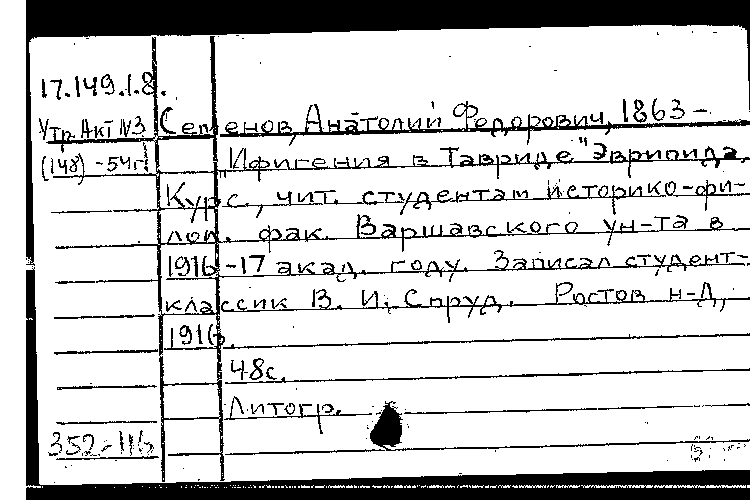 17.149.1.8.
Утр. Акт N3 Семенов, Анатолий Федорович, 1863 –
(148) - 54г. "Ифигения в Тавриде" Эврипида.
Курс, чит. студентам историко-фи-
лол. фак. Варшавского ун-та в
1916-17 акад. году. Записал студент-
классик В. И. Спруд. Ростов н-Д,
1916.
48с.
Литогр.
352-116